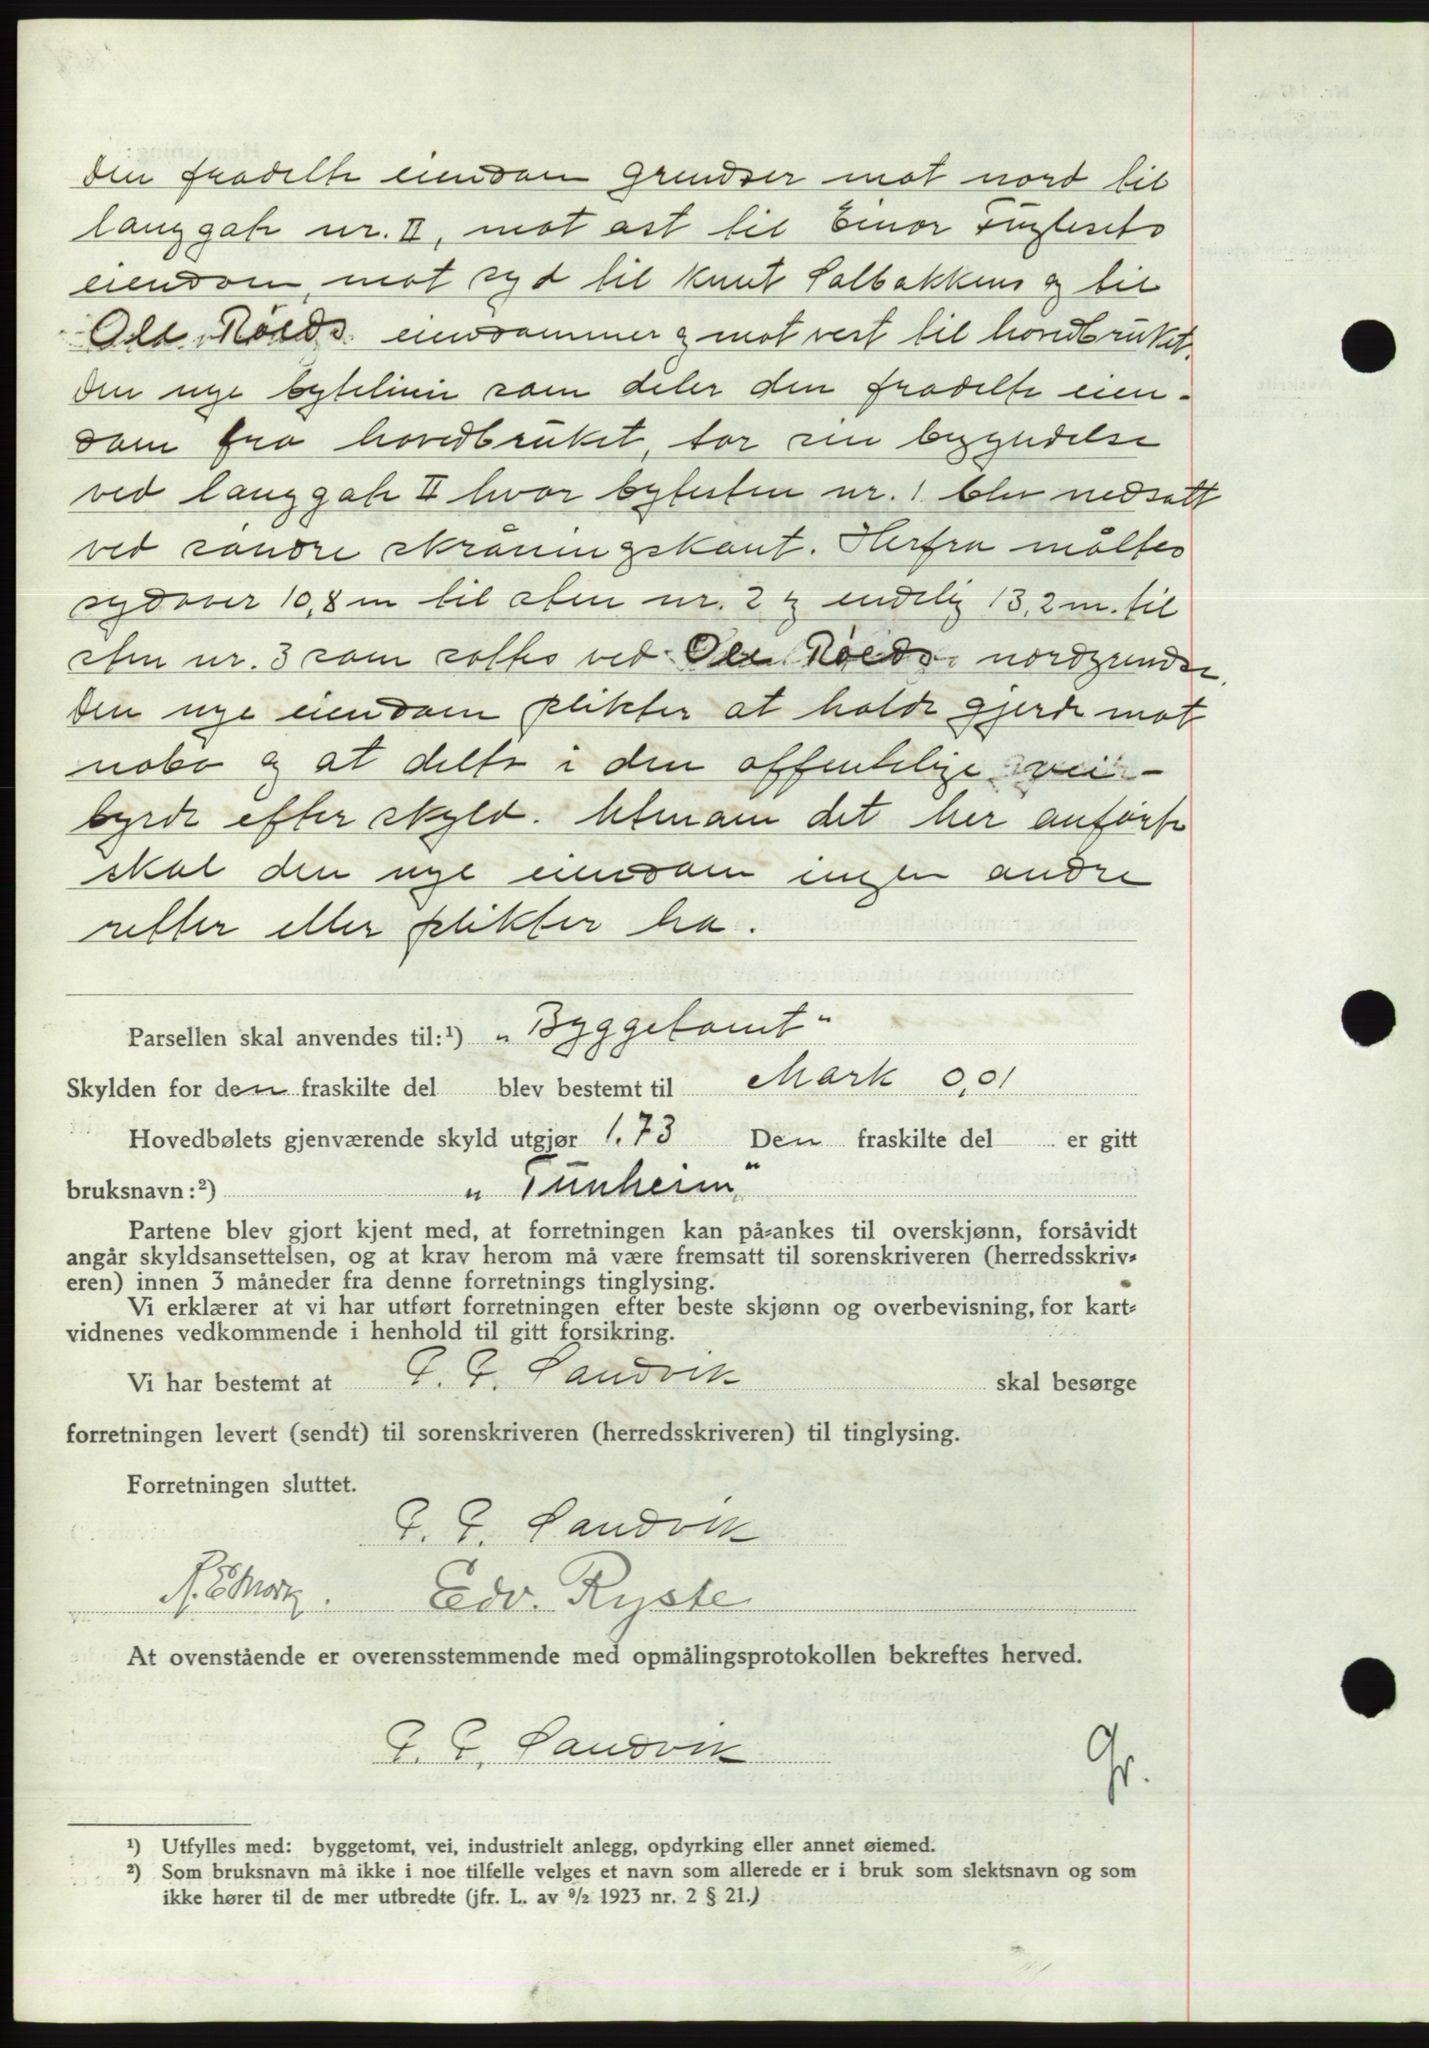 Den fradelte eiendom grendser mot nord til
langgate nr. II, mot øst til Einar Fuglesets
eiendom, mot syd til Knut Solbakkens og til
Ole Røeds eiendommer og mot vest til hovedbruket.
Den nye bytelinie som deler den fradelte eien-
dom fra hovedbruket, tar sin begyndelse
ved langgate II hvor bytesten nr. 1 blev nedsatt
ved søndre skråningskant. Herfra måltes
sydover 10,8 m til sten nr. 2 og endelig 13,2 m. til
sten nr. 3 som sattes ved Ole Røeds nordgrendse.
Den nye eiendom plikter at holde gjerde mot
nabo og at delta i den offentlige vei-
byrde efter skyld. Utenom det her anførte
skal den nye eiendom ingen andre
retter eller plikter ha.
Parsellen skal anvendes til:¹) „Byggetomt“
Skylden for den fraskilte del blev bestemt til Mark 0,01
Hovedbølets gjenværende skyld utgjør 1.73 Den fraskilte del er gitt
bruksnavn:²) „Tunheim“
Partene blev gjort kjent med, at forretningen kan på-ankes til overskjønn, forsåvidt
angår skyldsansettelsen, og at krav herom må være fremsatt til sorenskriveren (herredsskriv-
eren) innen 3 måneder fra denne forretnings tinglysing.
Vi erklærer at vi har utført forretningen efter beste skjønn og overbevisning, for kart-
vidnenes vedkommende i henhold til gitt forsikring.
Vi har bestemt at P. P. Sandvik skal besørge
forretningen levert (sendt) til sorenskriveren (herredsskriveren) til tinglysing.
Forretningen sluttet.
P. P. Sandvik
Edv. Ryste
At ovenstående er overensstemmende med opmålingsprotokollen bekreftes herved.
P. P. Sandvik
Gr.
¹) Utfylles med: byggetomt, vei, industrielt anlegg, opdyrking eller annet øiemed.
²) Som bruksnavn må ikke i noe tilfelle velges et navn som allerede er i bruk som slektsnavn og som
ikke hører til de mer utbredte (jfr. L. av ⁹/₂ 1923 nr. 2 § 21.)